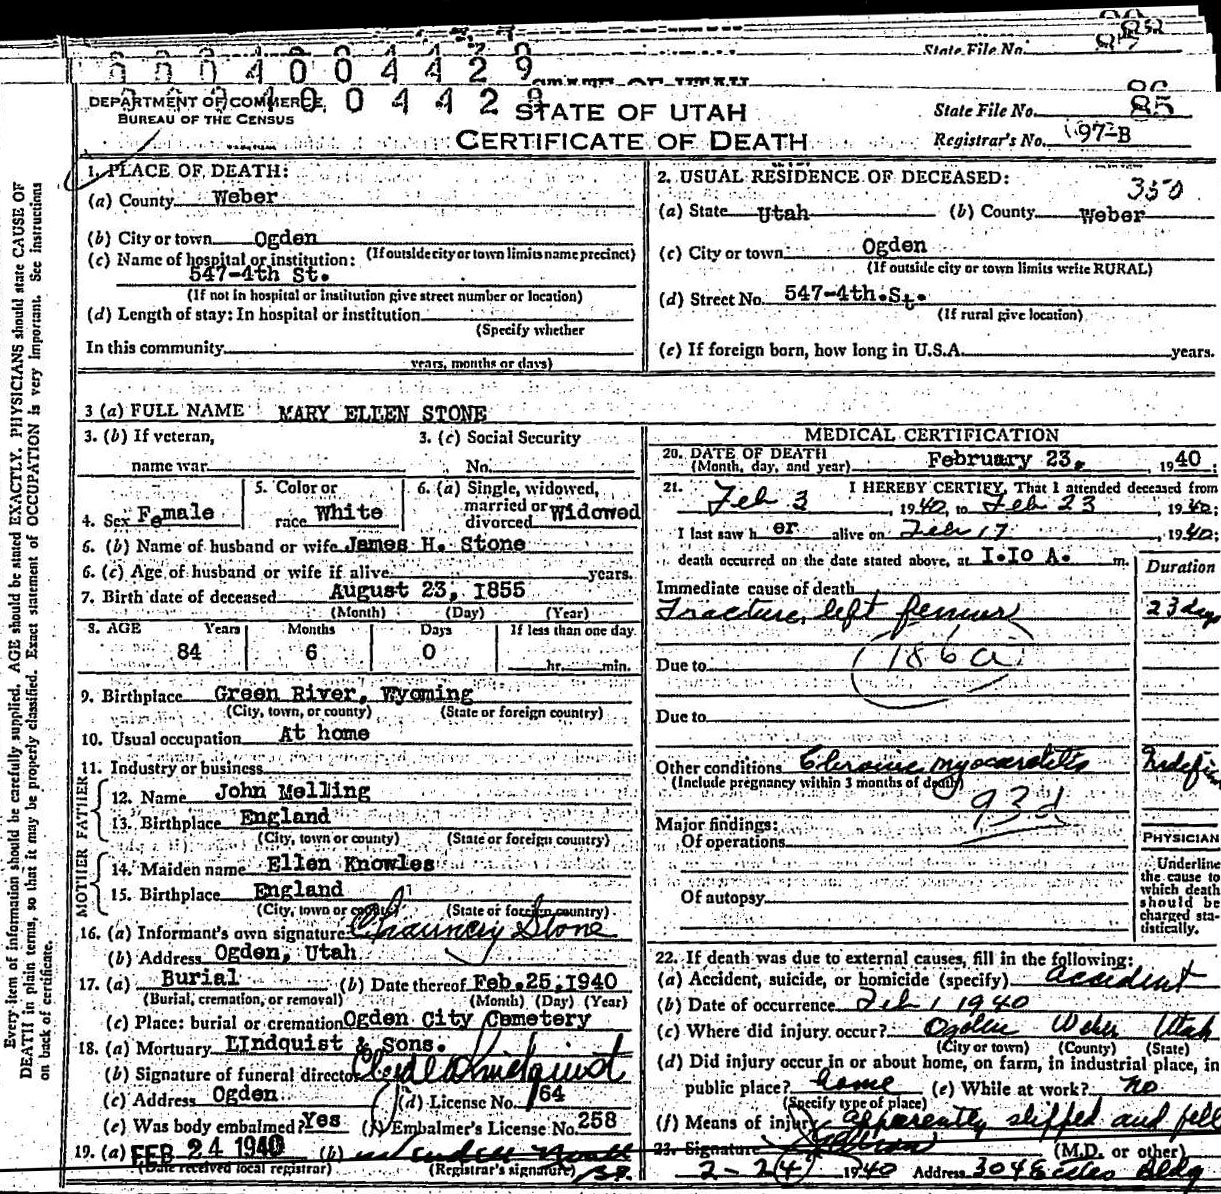 State File No.
0 0 0 4 0 0 4 4 2 9
STATE OF UTAH
86
DEPARTMENT OF COMMERCE
BUREAU OF THE CENSUS
0 4 0 0 4 4 2 8
STATE OF UTAH
CERTIFICATE OF DEATH
State File No. 85
Registrar's No. 97-B
1. PLACE OF DEATH:
(a) County Weber
(b) City or town Ogden
(If outside city or town limits name precinct)
(c) Name of hospital or institution:
547-4th St.
(If not in hospital or institution give street number or location)
(d) Length of stay: In hospital or institution
(Specify whether
In this community
years, months or days)
2. USUAL RESIDENCE OF DECEASED:
350
(a) State Utah (b) County Weber
(c) City or town: Ogden
(If outside city or town limits write RURAL)
(d) Street No. 547-4th.St.
(If rural give location)
(e) If foreign born, how long in U.S.A. years.
3 (a) FULL NAME MARY ELLEN STONE
3. (b) If veteran,
name war
3. (c) Social Security
No.
4. Sex Female
5. Color or
race White
6. (a) Single, widowed,
married or
divorced Widowed
6. (b) Name of husband or wife James H. Stone
6. (c) Age of husband or wife if alive years.
7. Birth date of deceased August 23, 1855
(Month) (Day) (Year)
8. AGE Years Months Days If less than one day
84 6 0 hr. min.
9. Birthplace Green River, Wyoming
(City, town, or county) (State or foreign country)
10. Usual occupation At home
11. Industry or business
FATHER
12. Name John Melling
13. Birthplace England
(City, town or county) (State or foreign country)
MOTHER
14. Maiden name Ellen Knowles
15. Birthplace England
(City, town or county) (State or foreign country)
16. (a) Informant's own signature Chauncey Stone
(b) Address Ogden, Utah
17. (a) Burial (b) Date thereof Feb.25,1940
(Burial, cremation, or removal) (Month) (Day) (Year)
(c) Place: burial or cremation Ogden City Cemetery
18. (a) Mortuary LIndquist & Sons.
(b) Signature of funeral director Lindquist
(c) Address Ogden (d) License No. 164
(e) Was body embalmed? Yes (f) Embalmer's License No. 258
19. (a) FEB 24 1940 (b)
(Date received local registrar) (Registrar's signature)
MEDICAL CERTIFICATION
20. DATE OF DEATH
(Month, day, and year) February 23, 1940;
21. I HEREBY CERTIFY, That I attended deceased from
Feb 3, 1940, to Feb 23, 1940;
I last saw her alive on Feb 17, 1940;
death occurred on the date stated above, at I.I0 A. m.
Duration
Immediate cause of death
Fracture, left femur 23 days
186a
Due to
Due to
Other conditions Chronic myocarditis
(Include pregnancy within 3 months of death)
93d
Major findings:
Of operations
Of autopsy
PHYSICIAN
Underline
the cause to
which death
should be
charged sta-
tistically.
22. If death was due to external causes, fill in the following:
(a) Accident, suicide, or homicide (specify) accident
(b) Date of occurrence Feb 1 1940
(c) Where did injury occur? Ogden Weber Utah
(City or town) (County) (State)
(d) Did injury occur in or about home, on farm, in industrial place, in
public place? home (e) While at work? no
(Specify type of place)
(f) Means of injury apparently slipped and fell
23. Signature
(M.D. or other)
2-24 1940 Address 304 Eccles Bldg
Every item of information should be carefully supplied. AGE should be stated EXACTLY. PHYSICIANS should state CAUSE OF
DEATH in plain terms, so that it may be properly classified. Exact statement of OCCUPATION is very important. See instructions
on back of certificate.